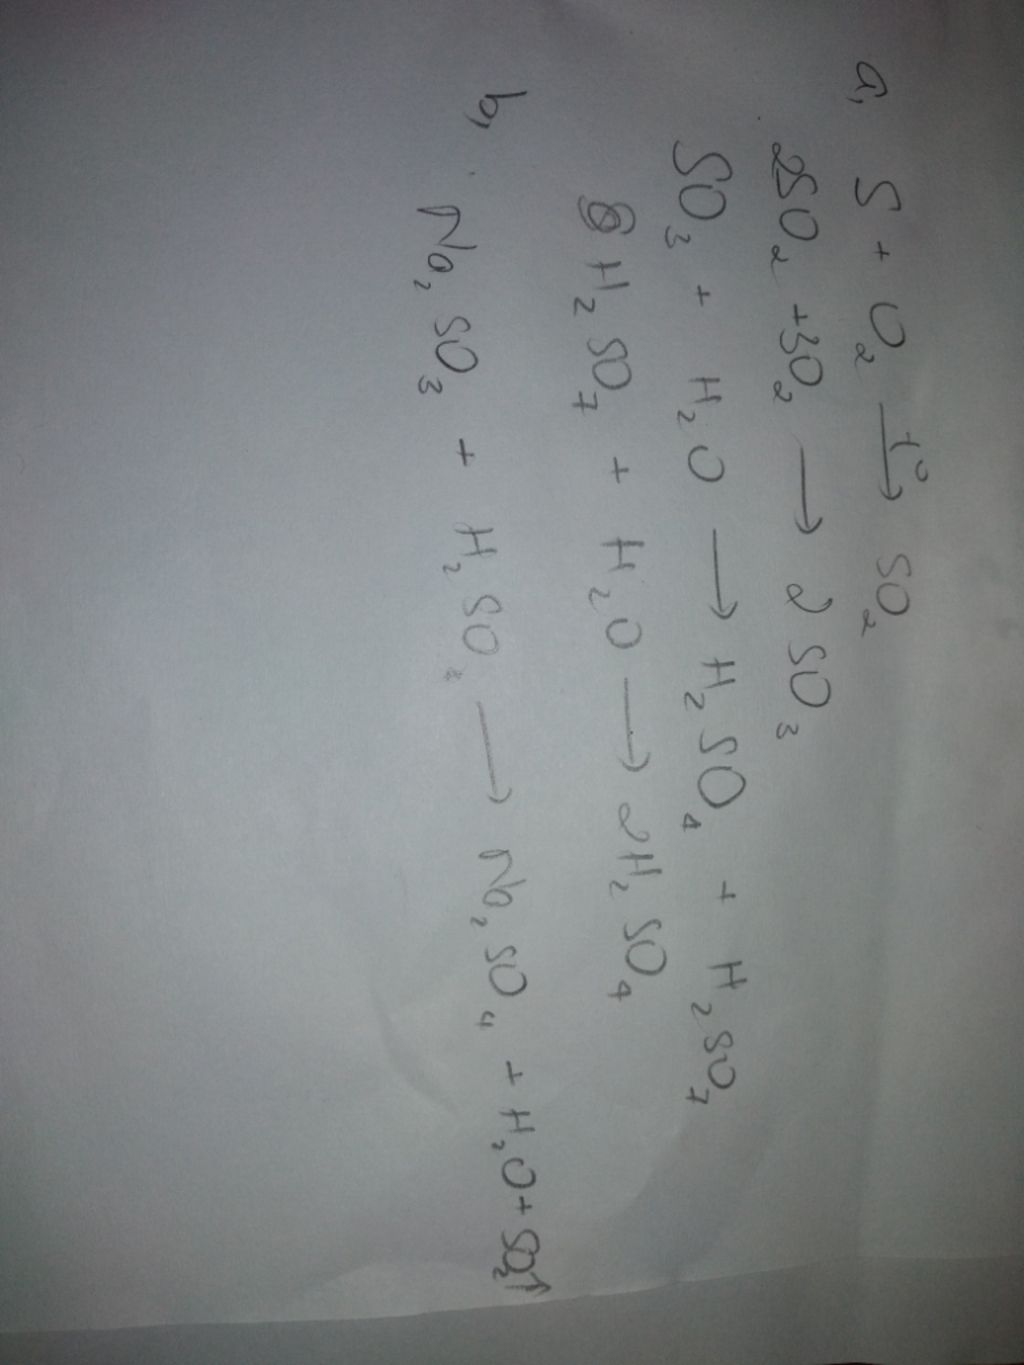 a, S + O₂ —t°→ SO₂
2SO₂ + 3O₂ → 2SO₃
SO₃ + H₂O → H₂SO₄ + H₂SO₇
H₂SO₇ + H₂O → 2H₂SO₄
b, Na₂SO₃ + H₂SO → Na₂SO₄ + H₂O + SO₂↑